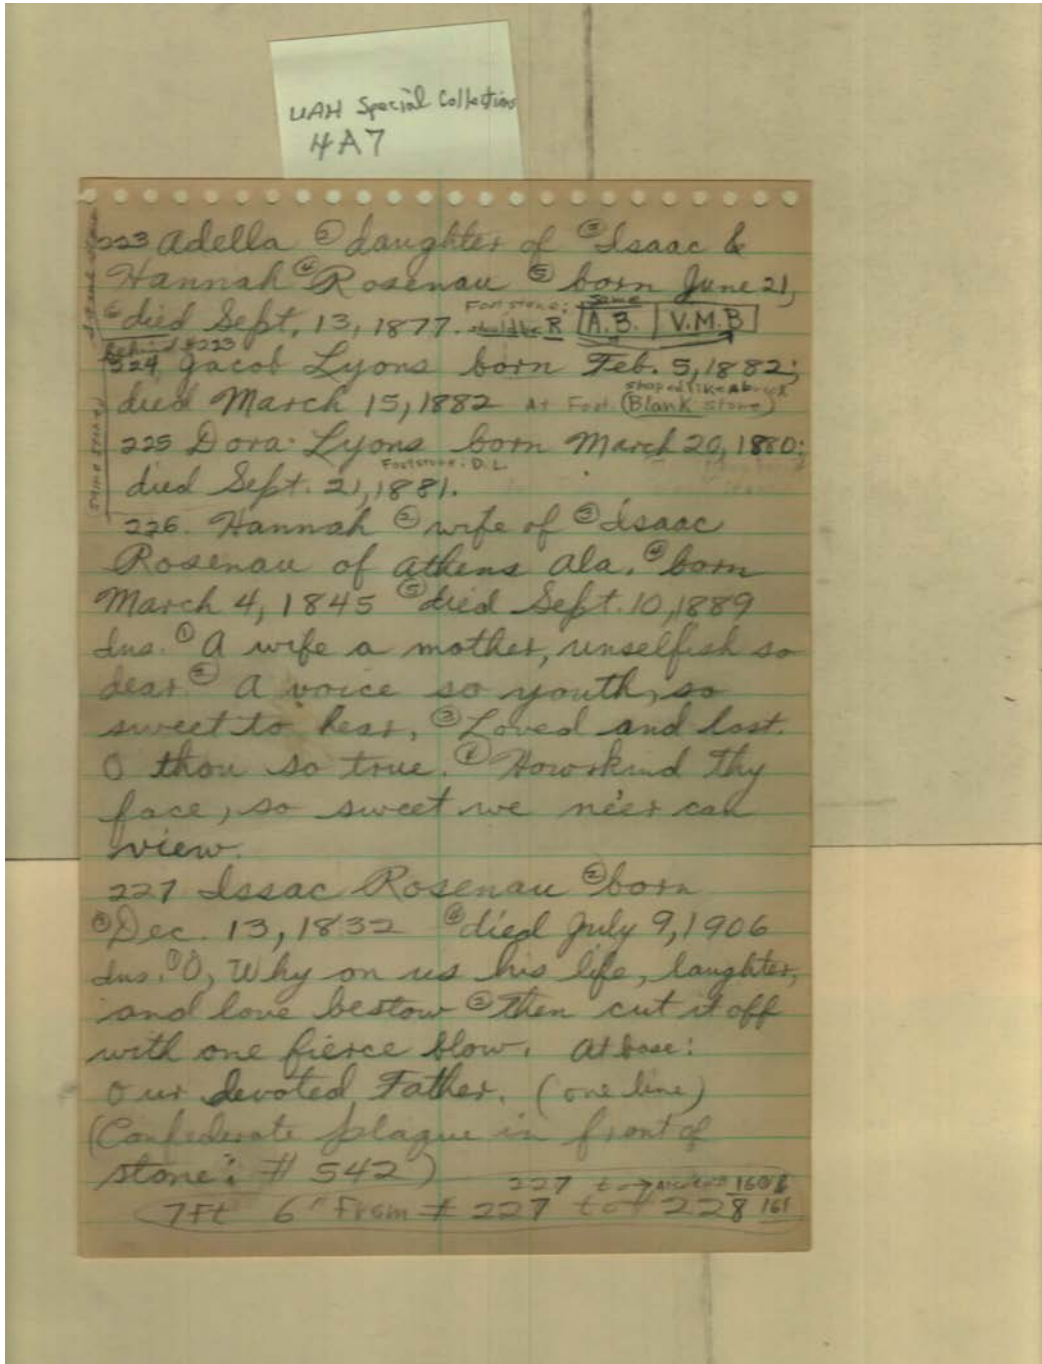 UAH Special Collections
4A7
223 Adella ② daughter of ③ Isaac &
Hannah ④ Rosenau ⑤ born June 21,
⑥ died Sept. 13, 1877. Footstone: should be R same A.B. V.M.B
behind #223
224 Jacob Lyons born Feb. 5, 1882;
shaped like a brick
died March 15, 1882 At Foot (Blank stone)
same stone
225 Dora Lyons born March 20, 1880;
Footstone: D.L.
died Sept. 21, 1881.
226. Hannah ② wife of ③ Isaac
Rosenau of Athens Ala. ④ born
March 4, 1845 ⑤ died Sept. 10, 1889
Ins. ① A wife a mother, unselfish so
dear ② A voice so youth, so
sweet to hear, ③ Loved and lost.
O thou so true. ④ How kind thy
face, so sweet we ne'er can
view.
227 Issac Rosenau ② born
③ Dec. 13, 1832 ④ died July 9, 1906
Ins. ① O, Why on us his life, laughter,
and love bestow ② then cut it off
with one fierce blow. At base:
Our devoted Father. (one line)
(Confederate plaque in front of
stone: # 542)
227 to 160
7Ft 6" From # 227 to # 228 161